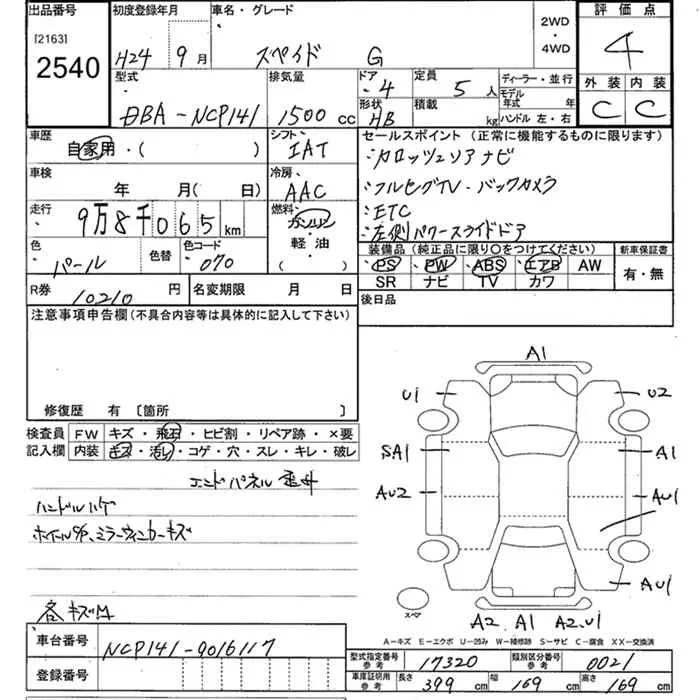 出品番号
[2163]
2540
初度登録年月
H24 9月
車名・グレード
スペイド G
2WD
・4WD
評価点
4
外装 内装
C C
型式
DBA-NCP141
排気量
1500 cc
ドア 4
形状 HB
定員 5人
積載 kg
ディーラー・並行
モデル年式 年
ハンドル 左・右
車歴
自家用・( )
シフト
IAT
セールスポイント (正常に機能するものに限ります)
・カロッツェリアナビ
・フルセグTV・バックカメラ
・ETC
・左側パワースライドドア
車検
年 月( 日)
冷房
AAC
走行
9万8千065 km
燃料
ガソリン
軽・油
( )
色
パール
色替
色コード
070
装備品 (純正品に限り○をつけてください)
PS PW ABS エアB AW
SR ナビ TV カワ
新車保証書
有・無
R券
10210 円
名変期限 月 日
後日品
注意事項申告欄 (不具合内容等は具体的に記入して下さい)
修復歴 有 〔箇所 〕
検査員
記入欄
FW キズ・飛石・ヒビ割・リペア跡・×要
内装 キズ・汚レ・コゲ・穴・スレ・キレ・破レ
エンドパネル
ハンドルハゲ
ホイールキズ、ミラーウィンカーキズ
各キズM
A1
U1
U2
SA1
A1
AU2
AU1
AU1
スペア
A2 A1 A2.U1
A-キズ E-エクボ U-凹み W-補修跡 S-サビ C-腐食 XX-交換済
車台番号
NCP141-9016117
登録番号
型式指定番号 参考 17320
類別区分番号 参考 0021
車庫証明用 参考
長さ 399 cm
幅 169 cm
高さ 169 cm